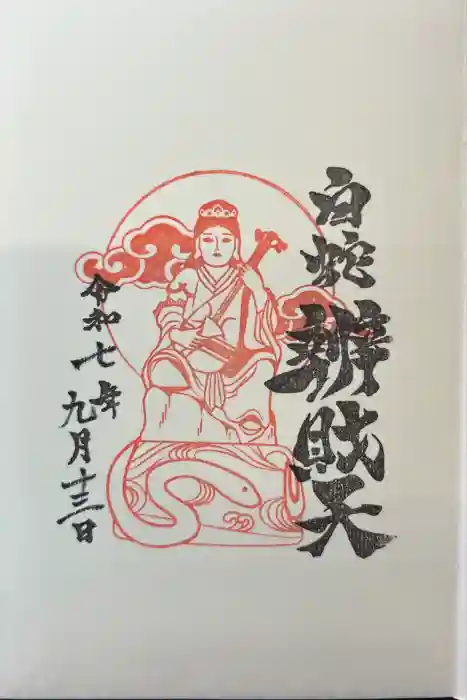 白蛇辨財天
令和七年九月十三日